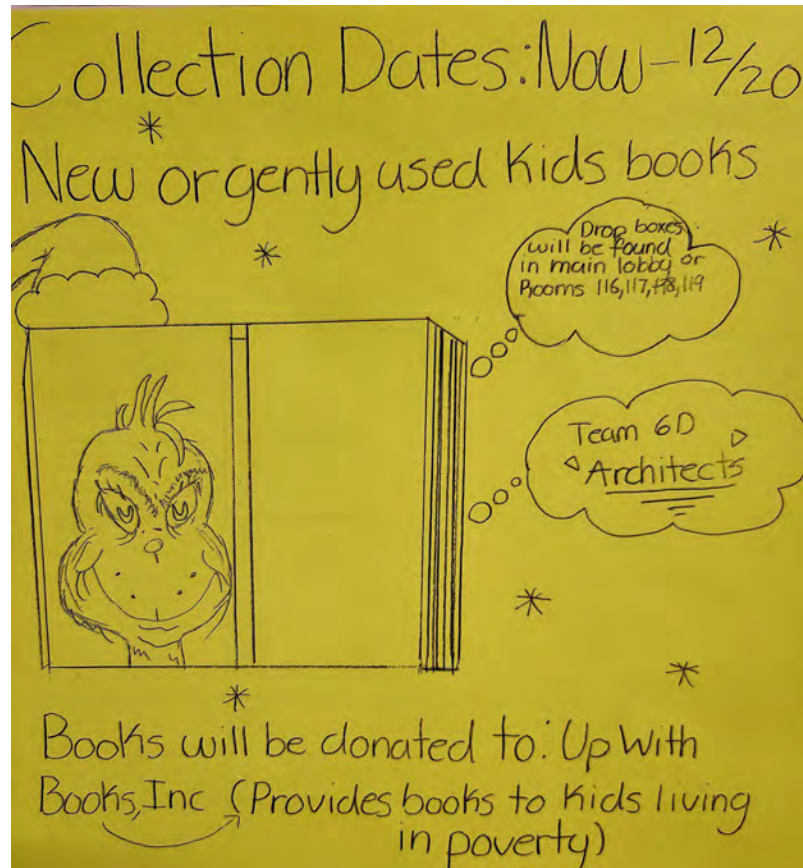 Collection Dates: Now - 12/20
New or gently used Kids books
Drop boxes
will be found
in main lobby or
Rooms 116, 117, 118, 119
Team 6D
Architects
Books will be donated to: Up With
Books, Inc (Provides books to Kids living
in poverty)